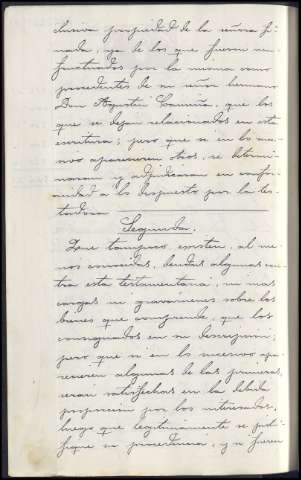 clusiva propiedad de la señora fi-
nada, ya de los que fueron usu-
fructuados por la misma como
procedentes de su señor hermano
Don Agustín que los
que se dejan relacionados en esta
escritura; pero que si en lo suce-
sivo aparecieren otros, se determi-
narán y adjudicarán en confor-
midad a lo dispuesto por la tes-
tadora
Segundo.
Que tampoco existen, al me-
nos conocidas, deudas algunas con-
tra esta testamentaria, ni mas
cargas ni gravámenes sobre los
bienes que comprende, que los
consignados en su descripción;
pero que si en lo sucesivo apa-
recieren algunas de las primeras,
serán satisfechas en la debida
proporción por los interesados,
luego que legítimamente se justi-
fique su procedencia, y si fueren